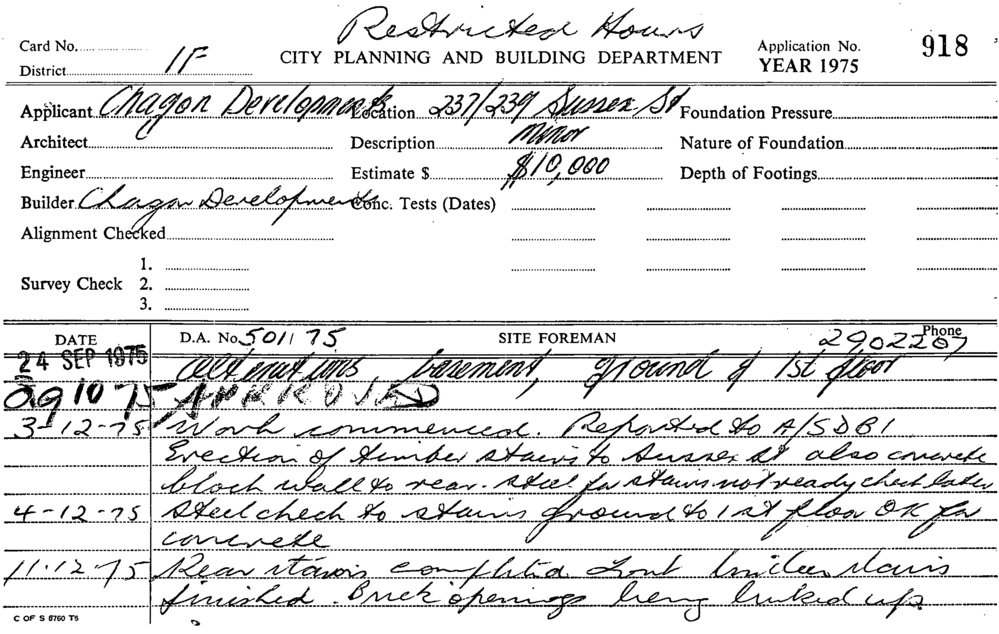 Restricted Hours
Card No.
CITY PLANNING AND BUILDING DEPARTMENT
Application No. 918
District 1F
YEAR 1975
Applicant Chagon Developments Location 237/239 Sussex St Foundation Pressure
Architect Description Minor Nature of Foundation
Engineer Estimate $ $10,000 Depth of Footings
Builder Chagon Developments Conc. Tests (Dates)
Alignment Checked
1.
Survey Check 2.
3.
DATE D.A. No 501175 SITE FOREMAN Phone 2902267
24 SEP 1975 alterations, basement, ground & 1st floor
29 10 75 APPROVED
3-12-75 Work commenced. Reported to A/SDBI
Erection of timber stairs to Sussex St also concrete
block wall to rear. steel for stairs not ready check later
4-12-75 Steel check to stairs ground to 1st floor OK for
concrete
11.12.75 Rear stairs completed front timber stairs
finished. Brick openings being bricked up.
C OF S 5760 T5